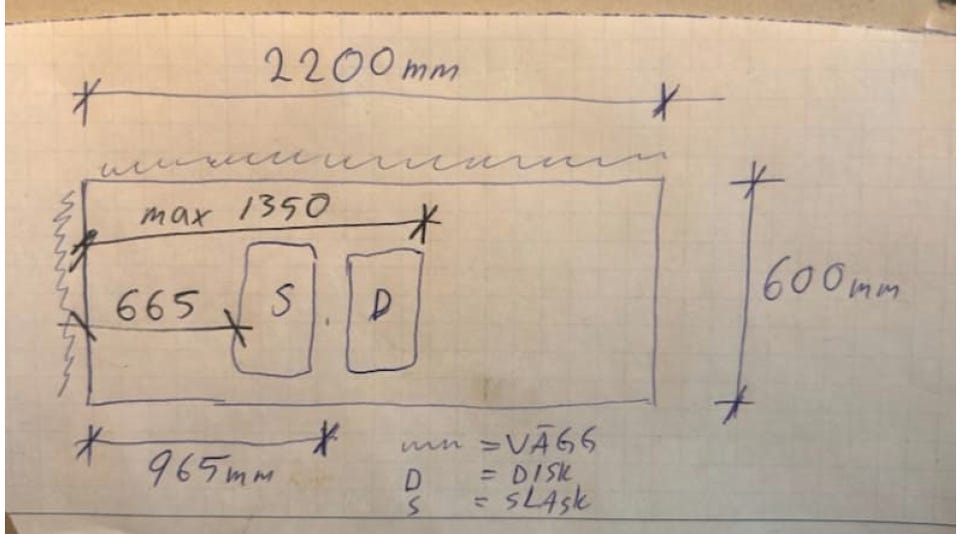 2200mm
max 1350
665
S
D
600mm
965mm
= VÄGG
D = DISK
S = SLASK